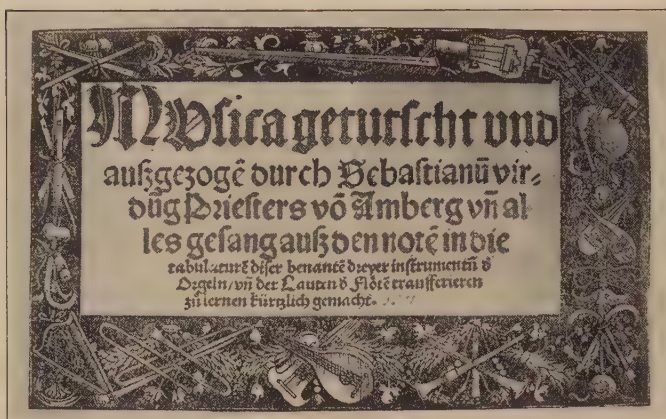 Musica getutscht und
außgezogē durch Sebastianū vir⸗
dūg Priesters vō Amberg vn̄ al
les gesang auß den notē in die
tabulaturē diser benantē dreyer instrumentū d̕
Orgeln/ vn̄ der Lauten d̕ Flötē transferieren
zū lernen kürtzlich gemacht.